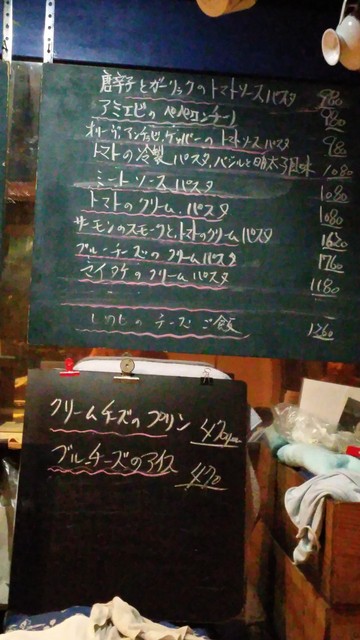 唐辛子とガーリックのトマトソースパスタ 980
アミエビのペペロンチーノ 980
オリーブ.アンチョビ.ケッパーのトマトソースパスタ 980
トマトの冷製パスタ,バジルと明太子風味 1080
ミートソースパスタ 1080
トマトのクリームパスタ 1080
サーモンのスモークと,トマトのクリームパスタ 1620
ブルーチーズのクリームパスタ 1760
セイタケのクリームパスタ 1180
チーズご飯 1260
クリームチーズのプリン 470
ブルーチーズのアイス 470